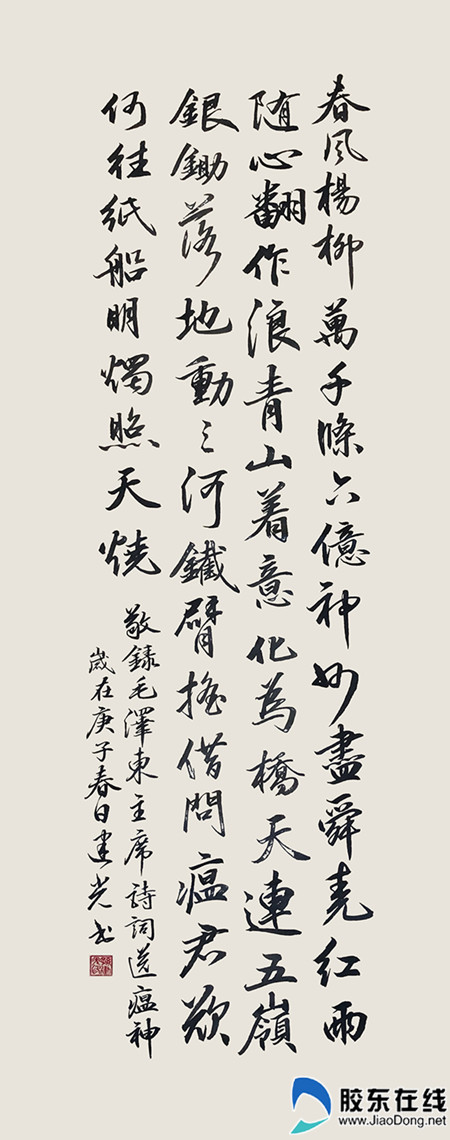 春風楊柳萬千條六億神妙盡舜堯紅雨
随心翻作浪青山着意化為橋天連五嶺
銀鋤落地動三河鐵臂搖借問瘟君欲
何往紙船明燭照天燒
敬録毛澤東主席詩詞送瘟神
歲在庚子春日建光书
胶东在线
www.JiaoDong.net